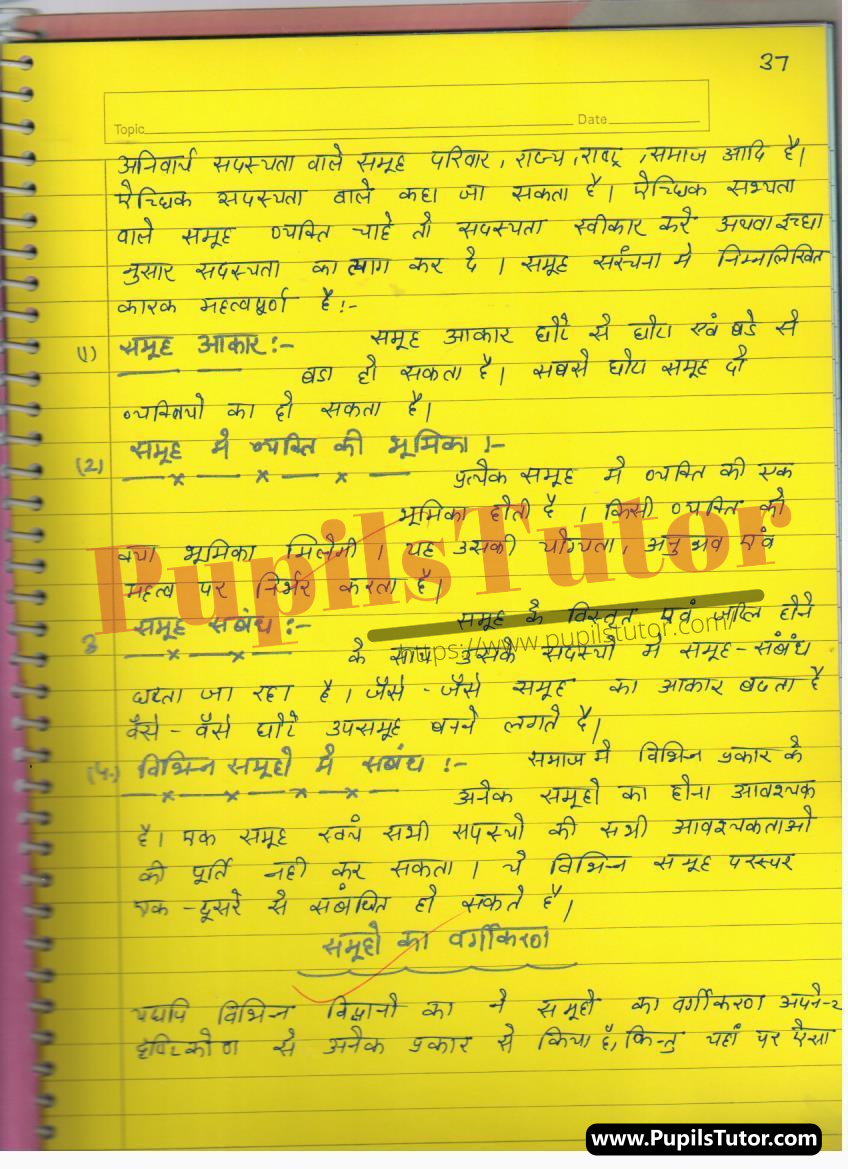 37
Topic Date
अनिवार्य सदस्यता वाले समूह परिवार, राज्य, राष्ट्र, समाज आदि है।
ऐच्छिक सदस्यता वाले कहा जा सकता है। ऐच्छिक सभ्यता
वाले समूह व्यक्ति चाहे तो सदस्यता स्वीकार करें अथवा इच्छा
नुसार सदस्यता का त्याग कर दे। समूह संरचना मे निम्नलिखित
कारक महत्वपूर्ण है:-
(1) समूह आकार:- समूह आकार छोटे से छोटा एवं बडे से
बडा हो सकता है। सबसे छोटा समूह दो
व्यक्तियो का हो सकता है।
(2) समूह मे व्यक्ति की भूमिका :-
प्रत्येक समूह मे व्यक्ति की एक
भूमिका होती है। किसी व्यक्ति को
क्या भूमिका मिलेगी। यह उसकी योग्यता, अनुभव एवं
महत्व पर निर्भर करता है।
3 समूह सबंध :- समूह के विस्तृत एवं जटिल होने
के साथ उसके सदस्यो मे समूह-संबंध
घटता जा रहा है। जैसे-जैसे समूह का आकार बढता है
वैसे-वैसे छोटे उपसमूह बनने लगते है।
(4.) विभिन्न समूहो मे सबंध :- समाज मे विभिन्न प्रकार के
अनेक समूहो का होना आवश्यक
है। एक समूह स्वयं सभी सदस्यो की सभी आवश्यकताओ
की पूर्ति नही कर सकता। ये विभिन्न समूह परस्पर
एक-दूसरे से संबंधित हो सकते है।
समूहो का वर्गीकरण
यद्यपि विभिन्न विद्वानो का ने समूहो का वर्गीकरण अपने-२
दृष्टिकोण से अनेक प्रकार से किया है, किन्तु यहां पर ऐसा
PupilsTutor
https://www.pupilstutor.com/
www.PupilsTutor.com